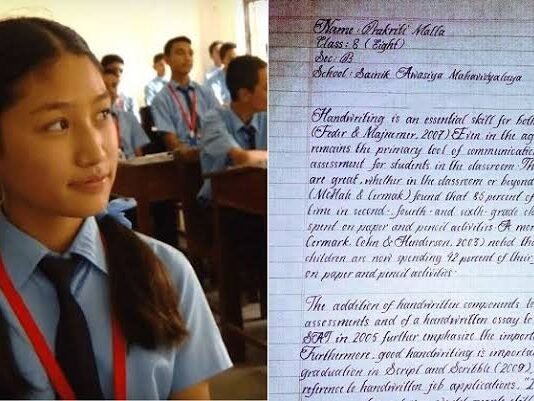 Name : Prakriti Malla
Class : 8 (Eight)
Sec : B
School : Sainik Awasiya Mahavidyalaya
Handwriting is an essential skill for both
(Feder & Majnemer, 2007) Even in the ag
remains the primary tool of communication
assessment for students in the classroom. Th
are great, whether in the classroom or beyond
(McHale & Cermak) found that 85 percent of
time in second - fourth - and sixth - grade cla
spent on paper and pencil activities A more
Cermark, Cohn & Henderson, 2003) noted tha
children are now spending 42 percent of their
on paper and pencil activities.
The addition of handwritten components to
assessments and of a handwritten essay to
SAT in 2005 further emphasize the importa
Furthermore, good handwriting is importan
graduation in Script and Scribble (2009),
reference to handwritten job applications, "I